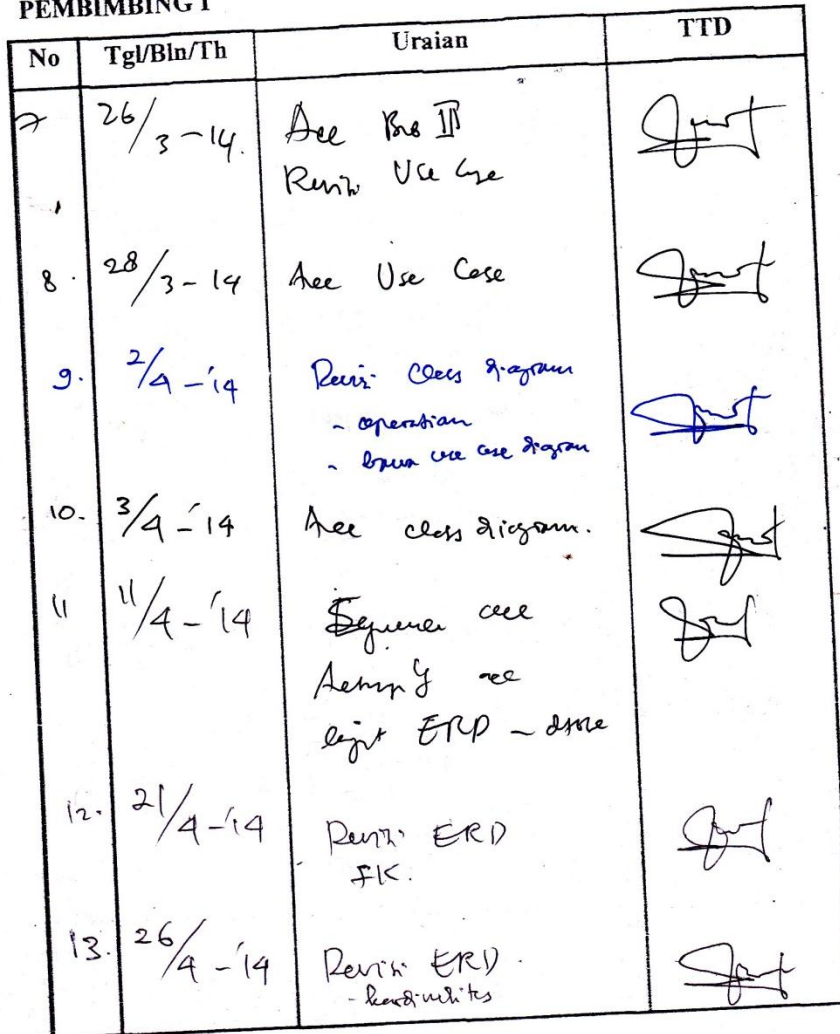 PEMBIMBING I
No Tgl/Bln/Th Uraian TTD
7 26/3-14. Acc Bab II
Revisi Use Case
8. 28/3-14 Acc Use Case
9. 2/4-'14 Revisi Class diagram
- operation
- use case diagram
10. 3/4-'14 Acc class diagram.
11 11/4-'14 Sequence acc
acc
ERD -
12. 21/4-'14 Revisi ERD
FK.
13. 26/4-'14 Revisi ERD.
- kardinalitas